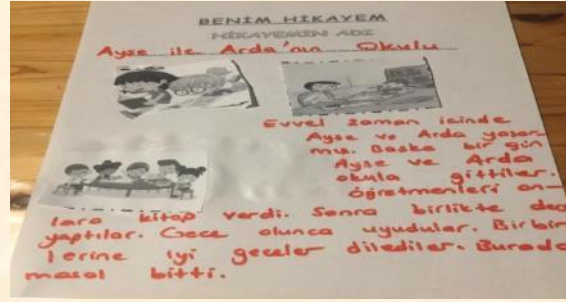 BENİM HİKAYEM
HİKAYEMİN ADI
Ayşe ile Arda'nın Okulu
Evvel zaman içinde
Ayşe ve Arda yaşar-
mış. Başka bir gün
Ayşe ve Arda
okula gittiler.
öğretmenleri on-
lara kitap verdi. Sonra birlikte ders
yaptılar. Gece olunca uyudular. Birbir
lerine iyi geceler dilediler. Burada
masal bitti.